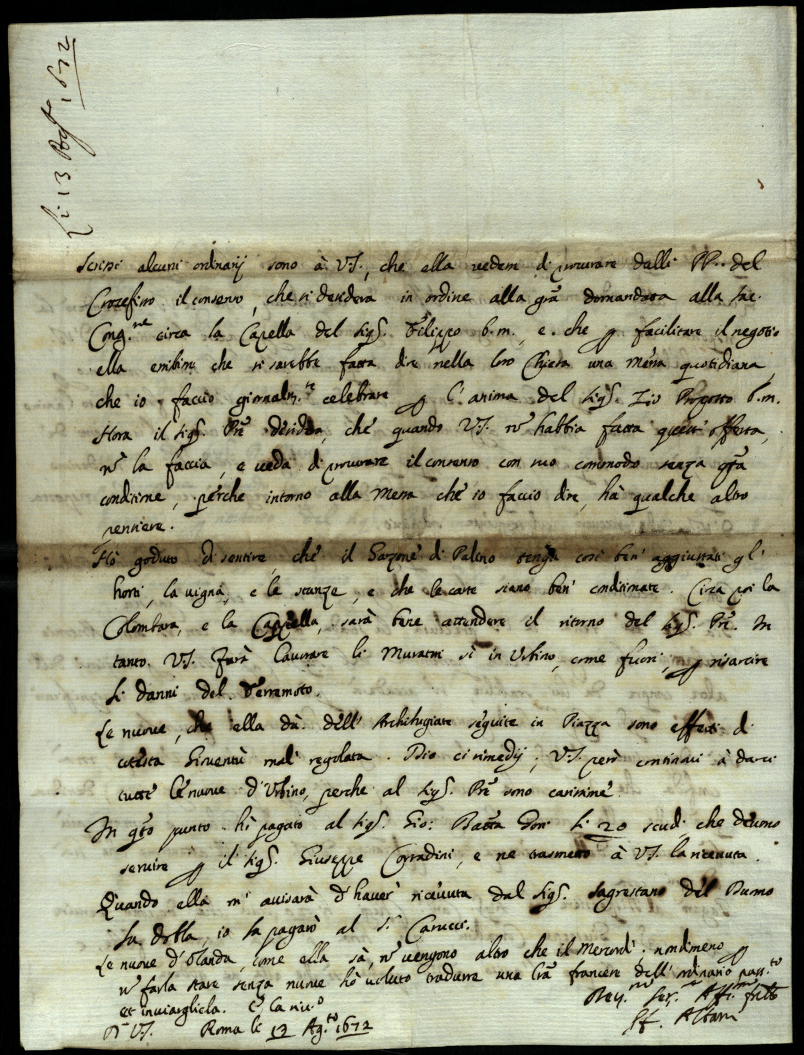 Li 13 Ag.to 1672
Scrissi alcuni ordinarij sono à V.S., che ella vedesse di procurare dalli PP. del
Crocefisso il consenso, che si desidera in ordine alla grã domandata alla Sac.
Cong.ne circa la Capella del Sig.r Filippo b.m., e che p facilitare il negotio
ella esibisse che si sarebbe fatta dire nella loro Chiesa una messa quotidiana,
che io faccio giornalm.te celebrare p l'anima del Sig.r Zio b.m.
Hora il Sig.r Prẽ desidera, che quando V.S. nõ habbia fatta quest'offerta,
nõ la faccia, e veda di procurare il consenso con suo commodo senza q̃sta
conditione, perche intorno alla messa che io faccio dire, hà qualche altro
pensiere.
Hò goduto di sentire, che il Garzone di Paleno tenga così ben' aggiustati gl'
horti, la vigna, e le stanze, e che le carte siano ben' conditionate. Circa poi la
Colombara, e la Cappella, sarà bene attendere il ritorno del Sig.r Prẽ. In
tanto V.S. farà lavorare li Muratori sì in Urbino, come fuori, p risarcire
li danni del Terremoto.
Le nuove, che ella dà dell' Archibugiate seguite in Piazza sono effetti di
cotesta Gioventù mal' regolata. Dio ci rimedij; V.S. però continovi à darci
tutte le nuove d'Urbino, perche al Sig.r Prẽ sono carissime.
In q̃sto punto hò pagato al Sig.r Gio: Batta Doni li 20 scudi che devono
servire p il Sig.r Giuseppe Corradini, e ne trasmetto à V.S. la ricevuta.
Quando ella m' avisarà d'haver' ricevuta dal Sig.r Sagrestano del Duomo
la dobla, io la pagarò al S.r Carucci.
Le nuove d'Olanda, come ella sà, nõ vengono altro che il Mercordì; nondimeno p
nõ farla stare senza nuove hò voluto tradurre una lrã francese dell' ordinario pass.to
et inviargliela. E la riv.o
Di V.S. Roma li 13 Ag.to 1672
Aff.mo
Albani